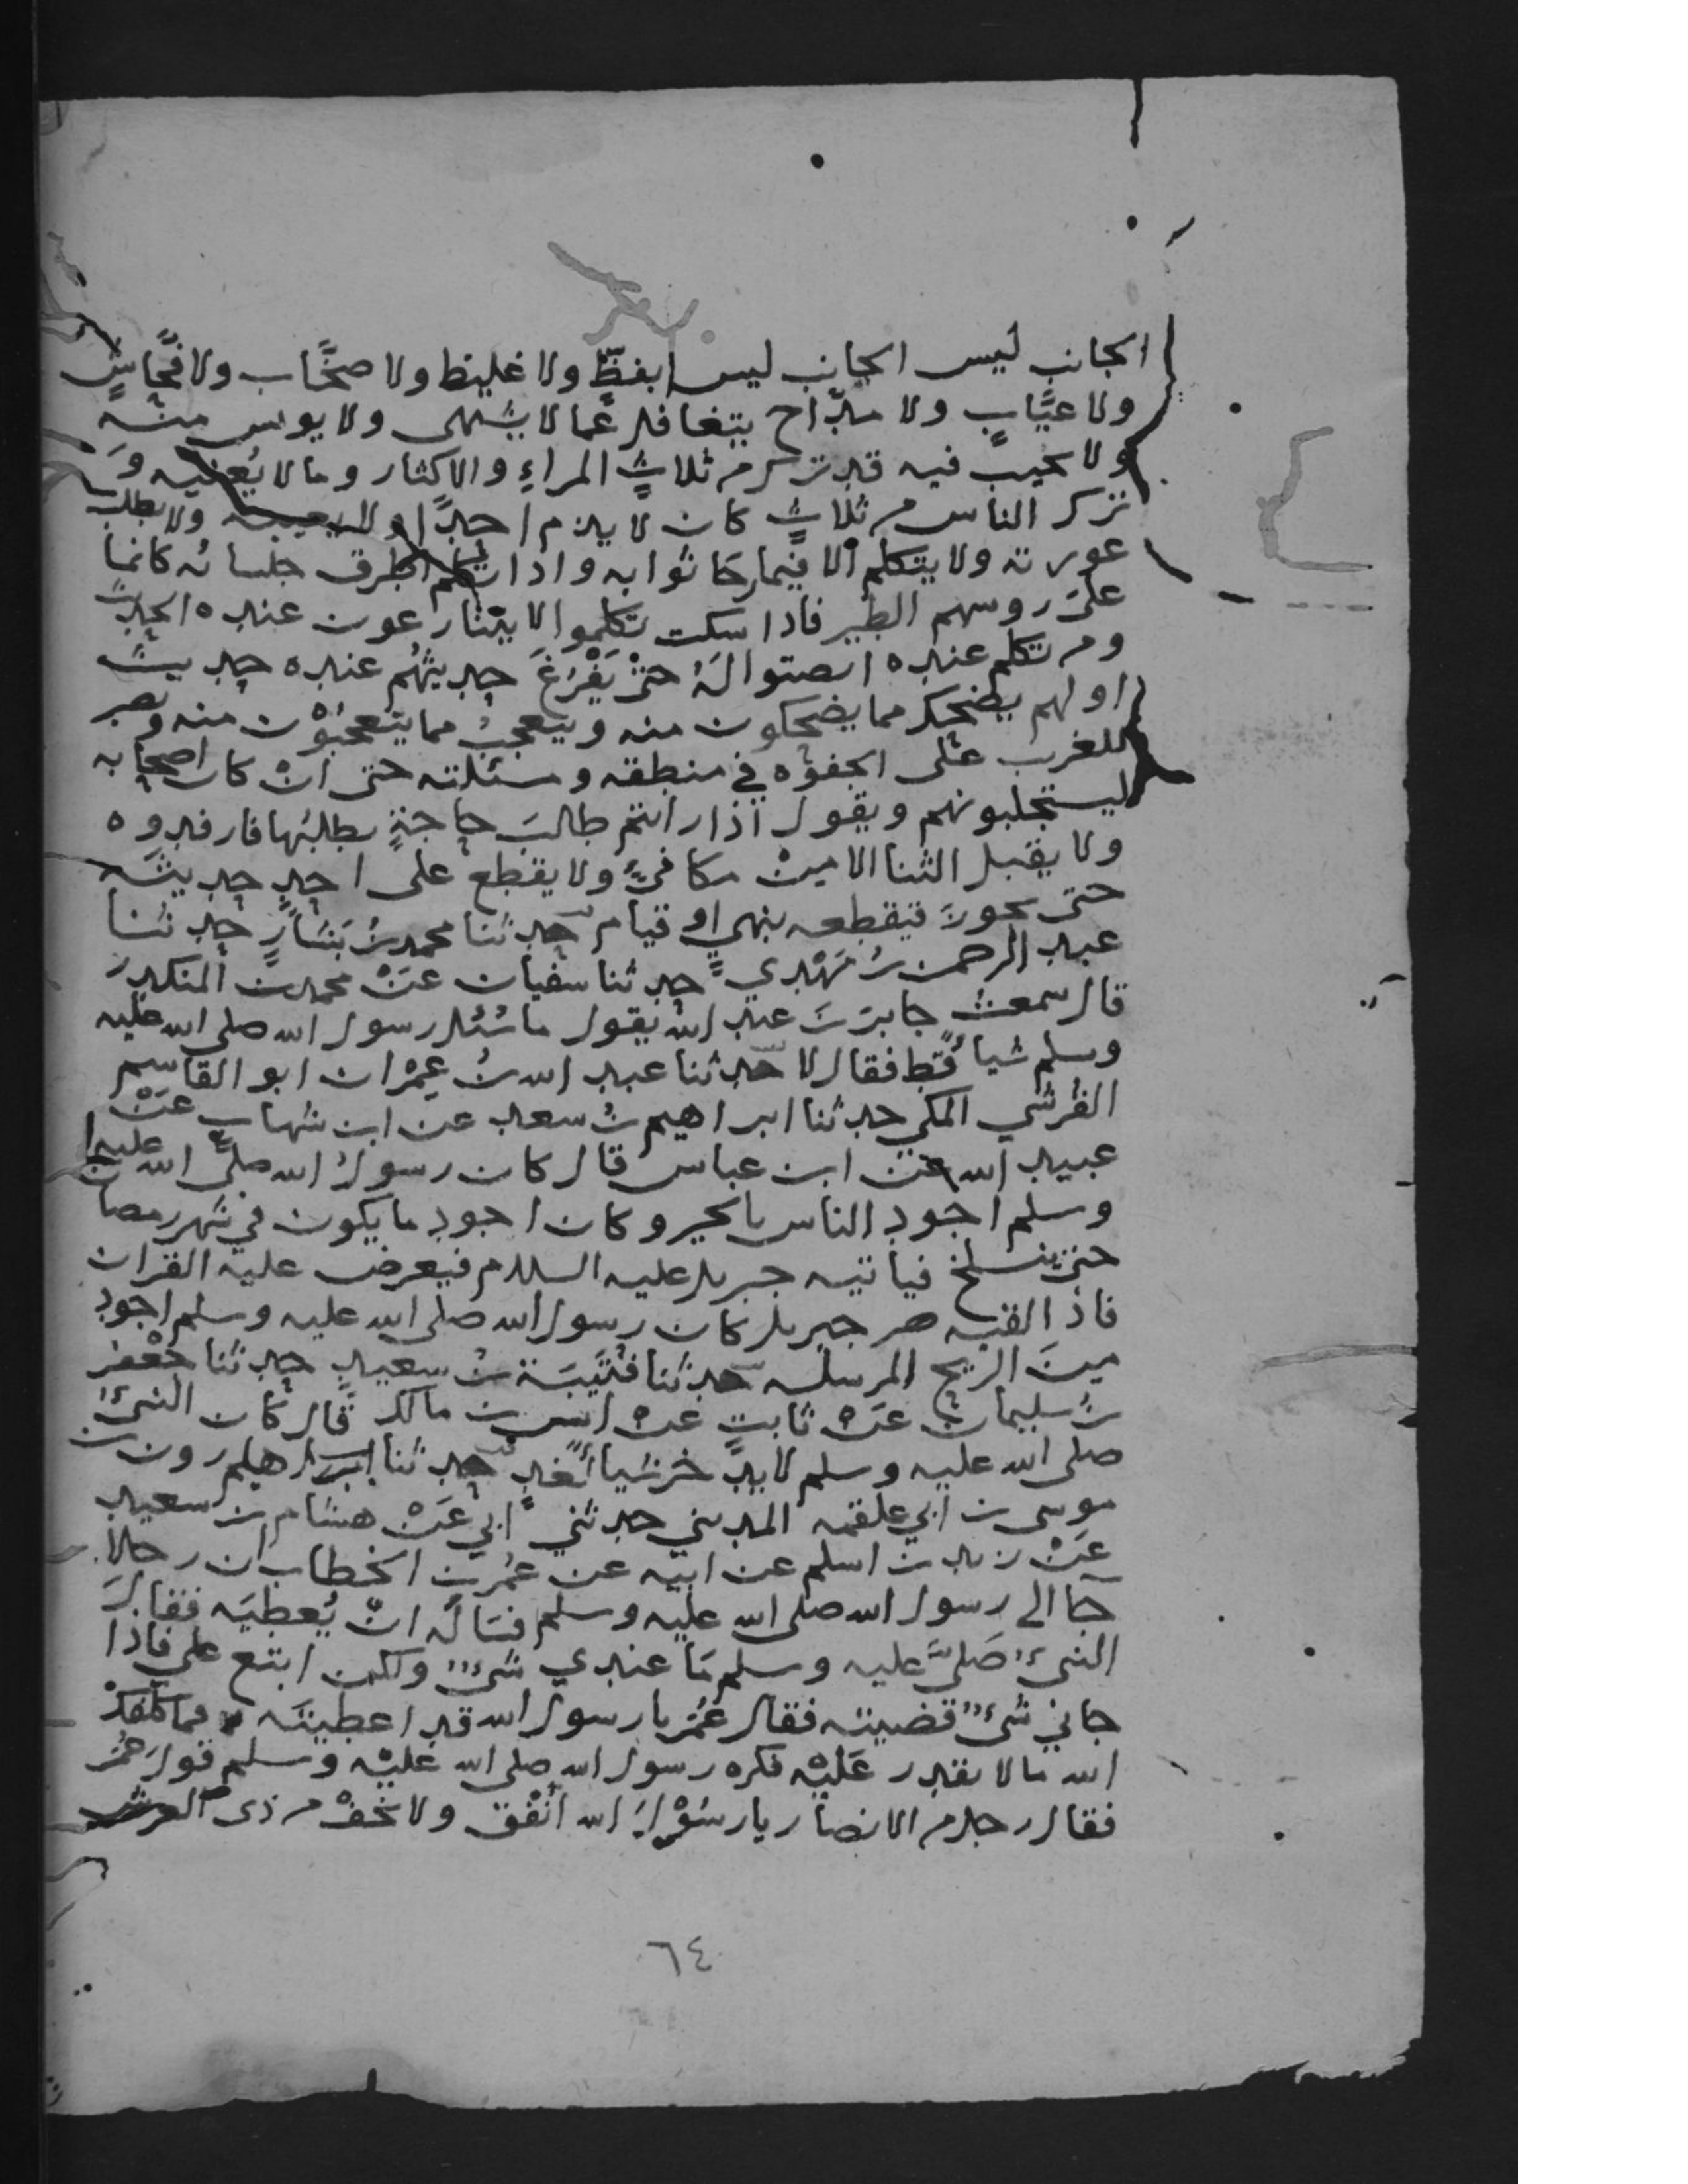 الجانب ليس الجانب ليس بفظّ ولا غليظ ولا صخّاب ولا فحّاشٍ
ولا عيّابٍ ولا مدّاح يتغافل عما لا يشهى ولا يوس منه
ولا يحيب فيه قد ترك م ثلاثٍ المراءِ والاكثار وما لا يعنيه و
ترك الناس م ثلاثٍ كان لا يذم احدًا ولا يعيبه ولا يطلب
عورته ولا يتكلم الا فيما رجا ثوابه واذا تكلم اطرق جلسائه كانما
على روسهم الطير فاذا سكت تكلموا لا يتنازعون عنده الحديث
وم تكلم عنده انصتوا لهُ حتى يَفْرُغَ حديثهُم عنده حديث
اولهم يضحك مما يضحكون منه ويتعجبُ مما يتعجبُوْن منه ويصبر
للغرب على الجفوه في منطقه ومسئلته حتى انْ كان اصحابه
ليستجلبونهم ويقول اذا رايتم طالبَ حاجةٍ يطلبُها فارفدوه
ولا يقبل الثنا الا مِنْ مكافيٍ ولا يقطع على احدٍ حديثَه
حتى يحورَ فيقطعه بنهي او قيام حدثنا محمد بنُ بَشارٍ حدثنا
عبد الرحمن بنُ مَهْدي حدثنا سفيان عَنْ محمد بن المنكدر
قال سمعتُ جابرَ بنَ عبد الله يقول ما سُئل رسول الله صلى الله عليه
وسلم شياً قط فقال لا حدثنا عبد الله بنُ عِمْران ابو القاسم
القُرشي المكي حدثنا ابراهيم بنُ سعد عن ابن شهاب عَنْ
عبيد الله عن ابن عباس قال كان رسولُ الله صلى الله عليه
وسلم اجود الناس بالخير وكان اجود ما يكون في شهر رمضان
حتى ينسلخ فياتيه جبريل عليه السلام فيعرض عليه القران
فاذ القيه جبريل كان رسول الله صلى الله عليه وسلم اجود
مِنَ الريح المرسله حدثنا قُتَيْبَة بنُ سعيدٍ حدثنا جَعْفر
بنُ سليمان عَنْ ثابتٍ عَنْ انس بن مالك قال كان النبىُّ
صلى الله عليه وسلم لا يدّخر شيا لغدٍ حدثنا هرون بن
موسى بن ابي علقمه المديني حدثني ابي عَنْ هشام بن سعيد
عَنْ زيد بن اسلم عن ابيه عن عُمر بن الخطاب ان رجلاً
جا الى رسول الله صلى الله عليه وسلم فسَالَه انْ يُعطيَه فقال
النبىُّ صَلى عليه وسلم مَا عندي شىءٌ ولكن ابتع علي فاذا
جاني شىءٌ قضيته فقال عُمَرُ يا رسول الله قد اعطيتَه فما كلفكَ
الله ما لا يقدر عَليْه فكره رسول الله صلى الله عَليْه وسلم قول عمر
فقال رجل م الانصار يا رسُوْلَ الله اَنْفق ولا تخفْ م ذى العرش
٦٤